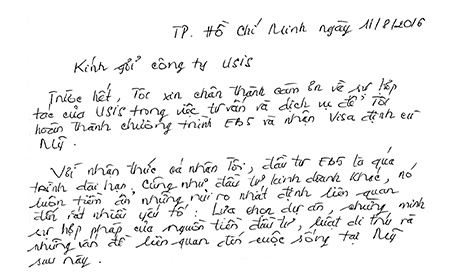 TP. Hồ Chí Minh ngày 11/8/2016
Kính gửi công ty USIS
Trước hết, Tôi xin chân thành cảm ơn về sự hợp
tác của USIS trong việc tư vấn và dịch vụ để Tôi
hoàn thành chương trình EB5 và nhận Visa định cư
Mỹ.
Với nhận thức cá nhân Tôi, đầu tư EB5 là quá
trình dài hạn, cũng như đầu tư kinh doanh khác, nó
luôn tiềm ẩn những rủi ro nhất định liên quan
đến rất nhiều yếu tố: Lựa chọn dự án, chứng minh
sự hợp pháp của nguồn tiền đầu tư, luật di trú và
những vấn đề liên quan đến cuộc sống tại Mỹ
sau này.